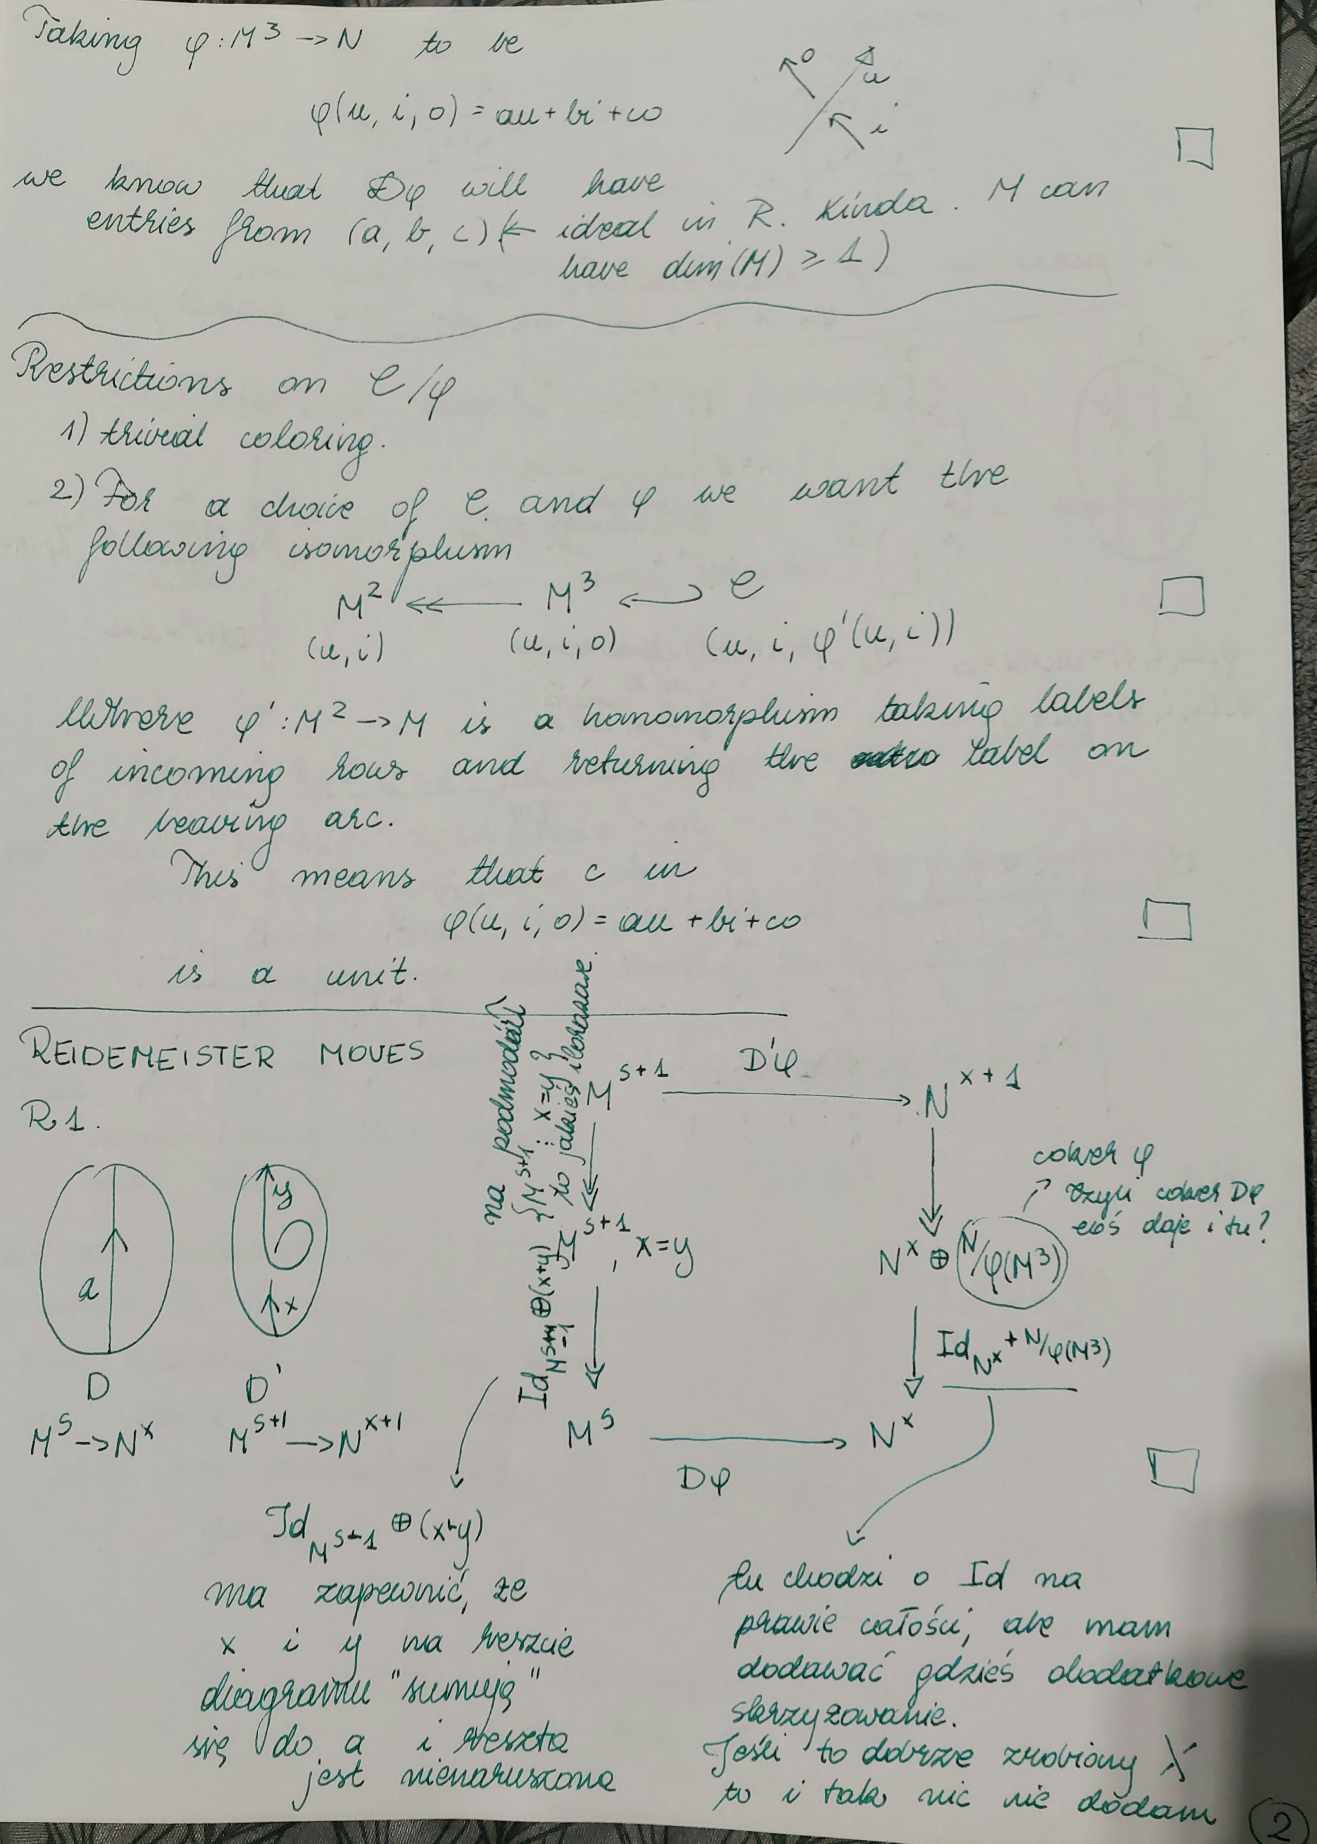 Taking φ : M³ → N to be
φ(u, i, o) = au + bi + co
o
u
i
we know that Dφ will have
entries from (a, b, c) (← ideal in R. Kinda. M can
have dim(M) ≥ 1)
Restrictions on C/φ
1) trivial coloring.
2) For a choice of C and φ we want the
following isomorphism
M² ↞ M³ ↩ C
(u, i) (u, i, o) (u, i, φ'(u, i))
Where φ' : M² → M is a homomorphism taking labels
of incoming rows and returning the label on
the leaving arc.
This means that c in
φ(u, i, o) = au + bi + co
is a unit.
REIDEMEISTER MOVES
R1.
a
y
x
D
D'
M^s → N^x
M^{s+1} → N^{x+1}
na podmoduł
{M^{s+1} : x=y}
to jakieś ilorazowe.
M^{s+1} D'φ → N^{x+1}
coker φ
czyli coker Dφ
coś daje i tu?
M^{s+1}, x=y
N^x ⊕ N/φ(M³)
Id_{M^{s-1}} ⊕ (x+y)
Id_{N^x} + N/φ(M³)
M^s → N^x
Dφ
Id_{M^{s-1}} ⊕ (x+y)
ma zapewnić, że
x i y na reszcie
diagramu "sumują"
się do a i reszta
jest nienaruszona
tu chodzi o Id na
prawie całości, ale mam
dodawać gdzieś dodatkowe
skrzyżowanie.
Jeśli to dobrze zrobiony X
to i tak nic nie dodam
2